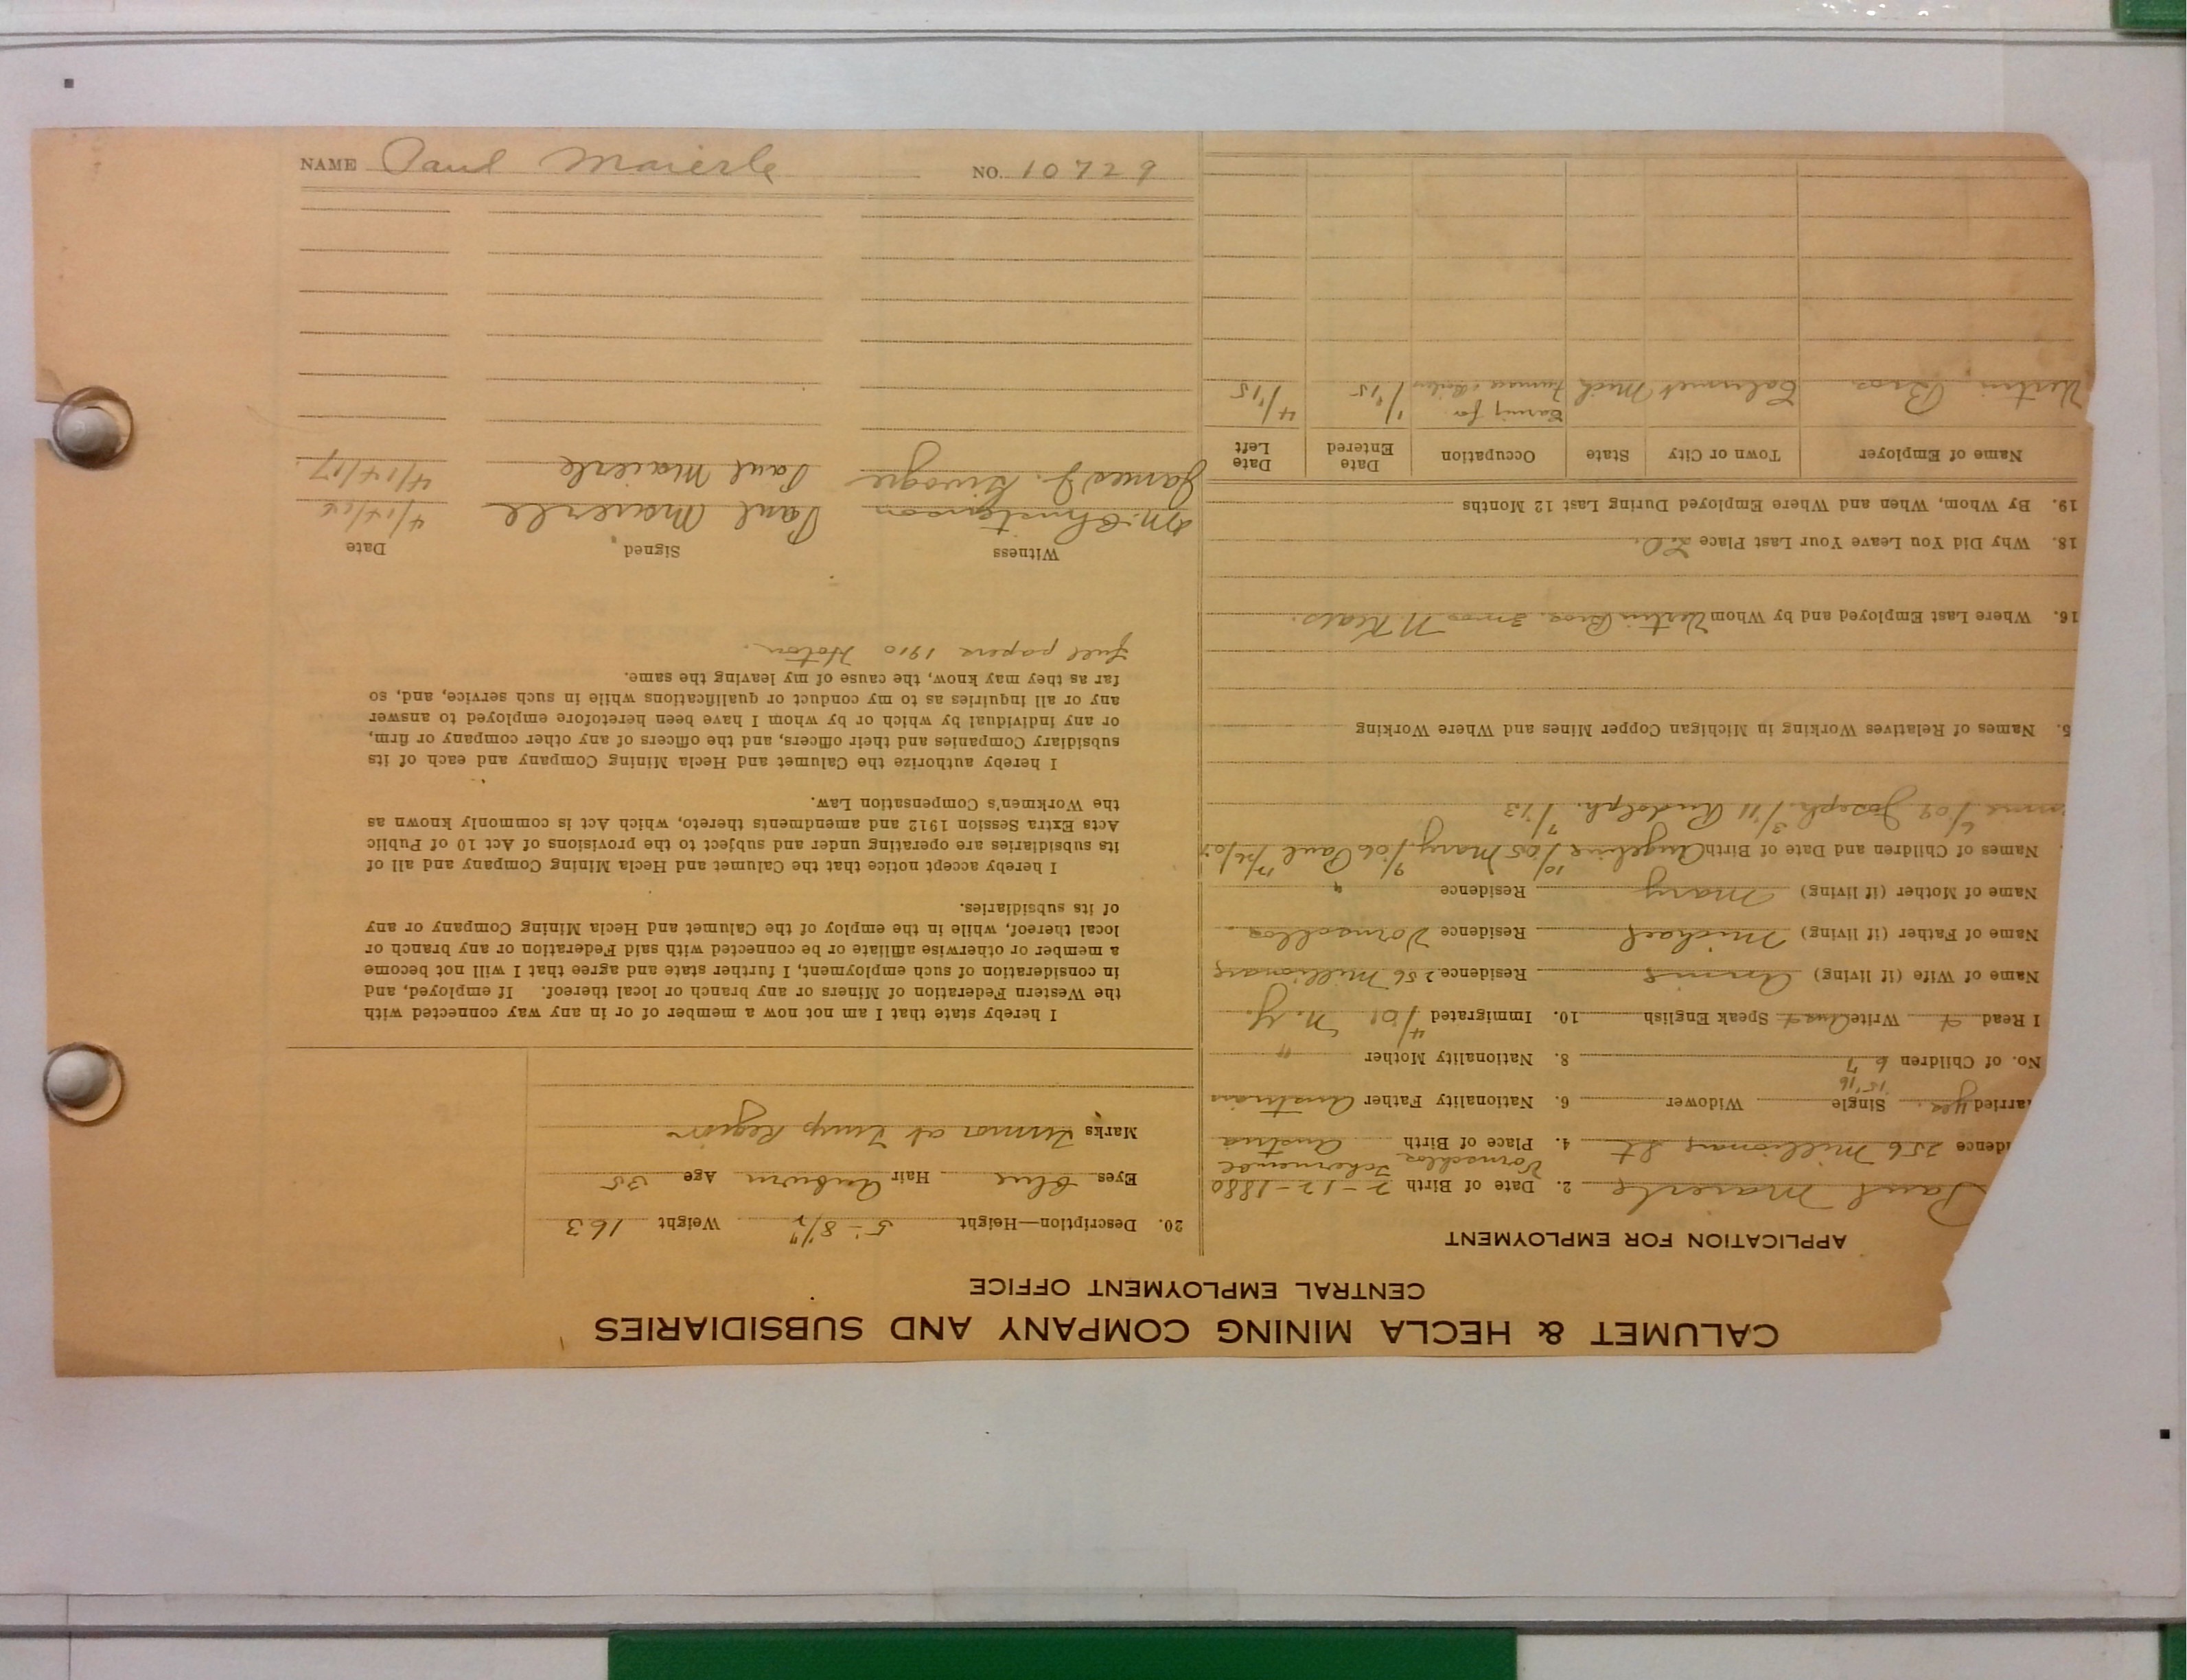 NAME Paul Maierle NO. 10729
CALUMET & HECLA MINING COMPANY AND SUBSIDIARIES
CENTRAL EMPLOYMENT OFFICE
APPLICATION FOR EMPLOYMENT
Paul Maierle 2. Date of Birth 2-12-1880
idence 256 Millionary St 4. Place of Birth Austria
arried yes. Single Widower 6. Nationality Father Austrian
15 16
No. of Children 6 7 8. Nationality Mother "
I Read Write Aust Speak English 10. Immigrated 4/01 N.Y.
Name of Wife (if living) Annie Residence 256 Millionary
Name of Father (if living) Michael Residence
Name of Mother (if living) Mary Residence "
Names of Children and Date of Birth Angeline 10/05 Mary 9/06 Paul
6/09 Joseph 3/11 Rudolph 7/13
5. Names of Relatives Working in Michigan Copper Mines and Where Working
16. Where Last Employed and by Whom Vertin Bros.
18. Why Did You Leave Your Last Place
19. By Whom, When and Where Employed During Last 12 Months
Name of Employer Town or City State Occupation Date Entered Date Left
Vertin Bros. Calumet Mich Caring for furnace 1/'15 4/'15
20. Description—Height 5-8 1/2" Weight 163
Eyes Blue Hair Auburn Age 35
Marks Tumor at Region
I hereby state that I am not now a member of or in any way connected with
the Western Federation of Miners or any branch or local thereof. If employed, and
in consideration of such employment, I further state and agree that I will not become
a member or otherwise affiliate or be connected with said Federation or any branch or
local thereof, while in the employ of the Calumet and Hecla Mining Company or any
of its subsidiaries.
I hereby accept notice that the Calumet and Hecla Mining Company and all of
its subsidiaries are operating under and subject to the provisions of Act 10 of Public
Acts Extra Session 1912 and amendments thereto, which Act is commonly known as
the Workmen's Compensation Law.
I hereby authorize the Calumet and Hecla Mining Company and each of its
subsidiary Companies and their officers, and the officers of any other company or firm,
or any individual by which or by whom I have been heretofore employed to answer
any or all inquiries as to my conduct or qualifications while in such service, and, so
far as they may know, the cause of my leaving the same.
Full papers 1910 Hoton.
Witness Signed Date
Paul Maierle
James J. Paul Maierle 4/14/17.